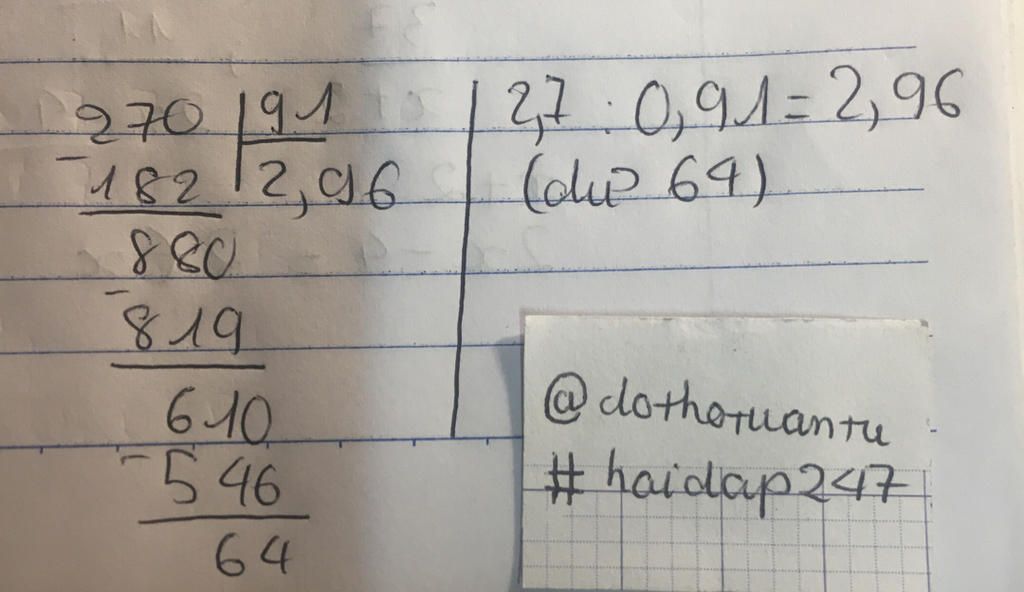 270 | 91
- 182 | 2,96
880
- 819
610
- 546
64
2,7 : 0,91 = 2,96
(dư 64)
@dothotuantu
# haidap247